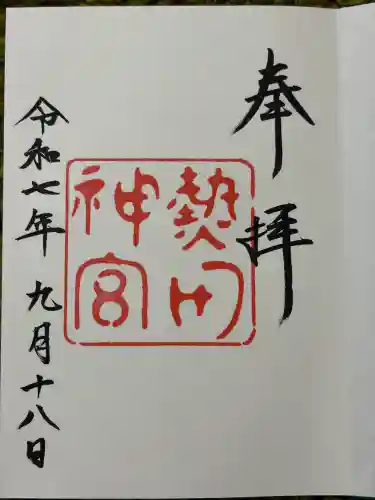 奉拝
熱田
神宮
令和七年九月十八日